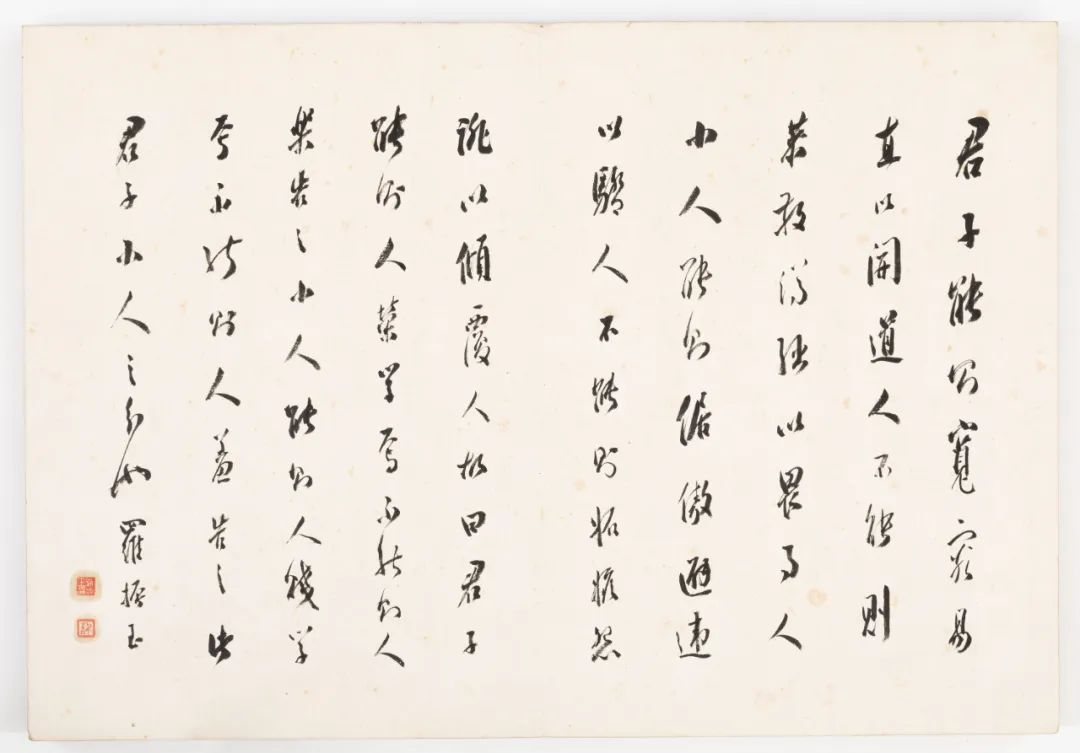 君子能則寬容易
直以開道人不能則
恭敬絀以畏事人
小人能則倨傲避違
以驕人不能則妬嫉怨
誹以傾覆人故曰君子
能則人榮學焉不能則人
樂告之小人能則人賤學
焉不能則人羞告之此
君子小人之分也 羅振玉